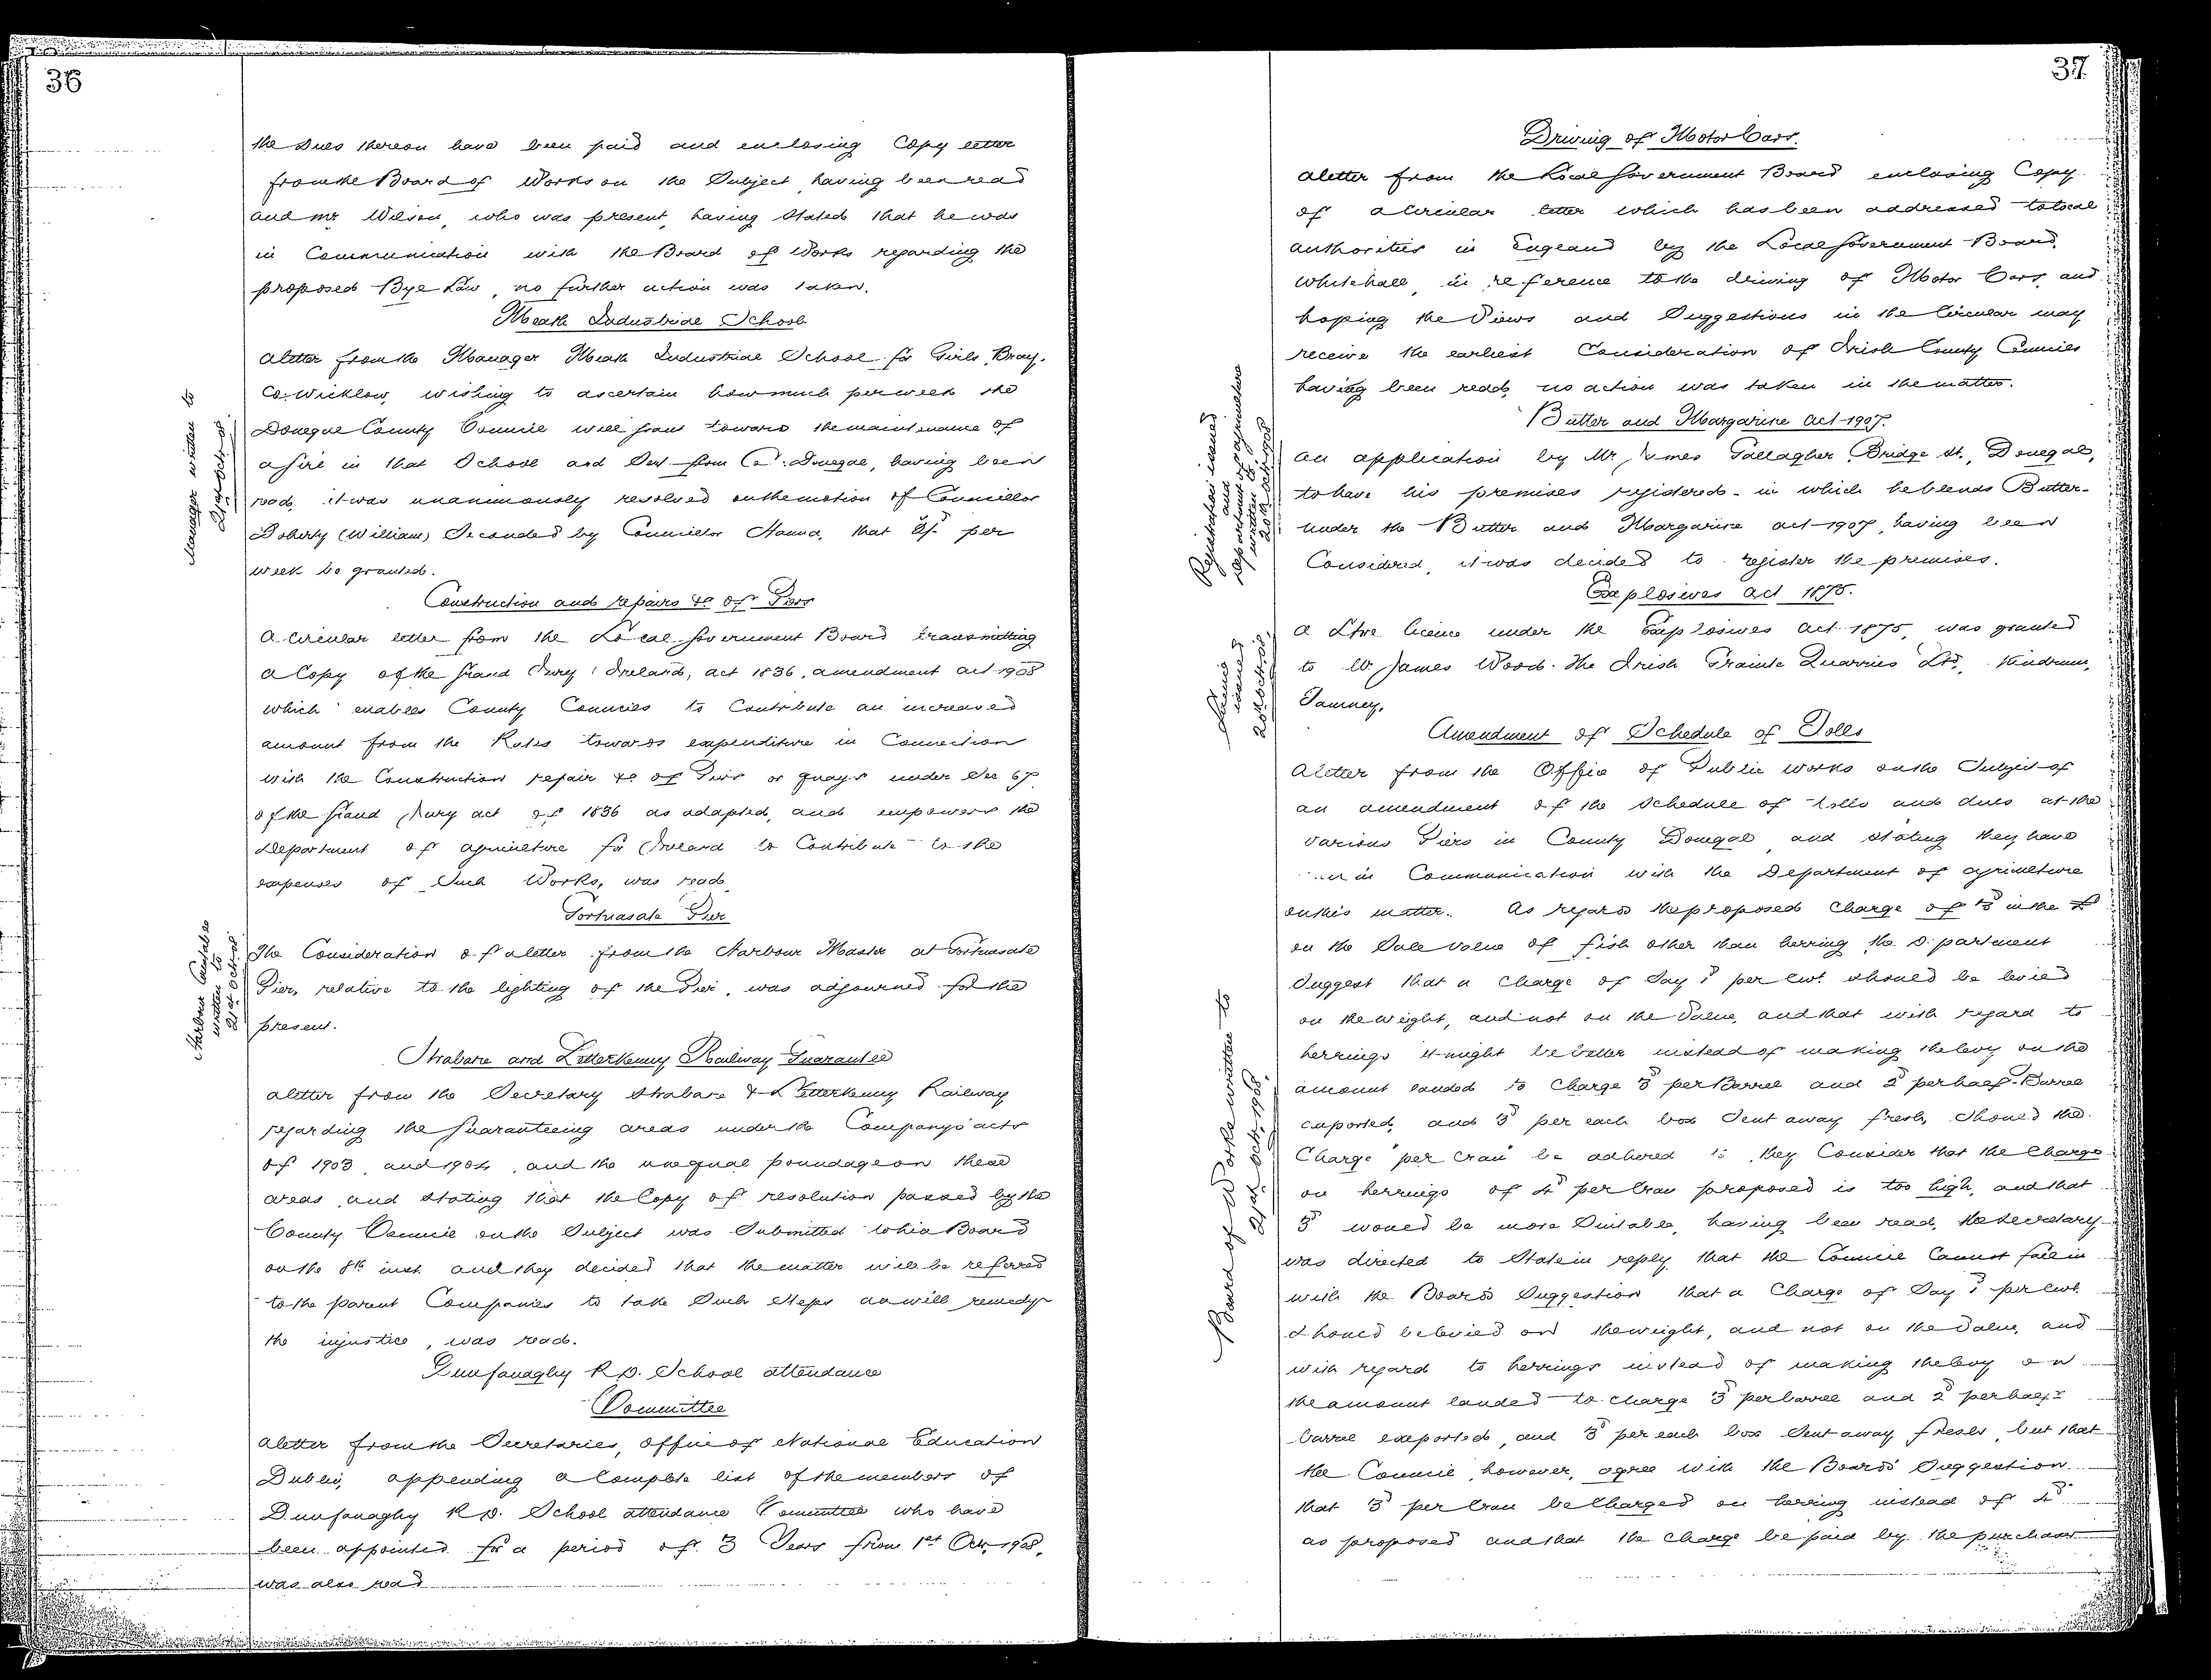 36
the dues thereon have been paid and enclosing Copy letter
from the Board of Works on the Subject having been read
and Mr Wilson, who was present, having stated that he was
in Communication with the Board of Works regarding the
proposed Bye Law, no further action was taken.
Meath Industrial School
A letter from the Manager Meath Industrial School for Girls, Bray.
Co. Wicklow, wishing to ascertain how much per week the
Donegal County Council will grant towards the maintenance of
a girl in that School and Sent from Co. Donegal, having been
read, it was unanimously resolved on the motion of Councillor
Doherty (William) Seconded by Councillor Hanna, that 2/- per
week be granted.
Manager written to
21st Oct. 08
Construction and repairs &c of Piers
A circular letter from the Local Government Board transmitting
a Copy of the Grand Jury (Ireland) act 1836, amendment act 1908
which enables County Councils to Contribute an increased
amount from the Rates towards expenditure in Connection
with the Construction repair &c of Piers or quays under Sec 67
of the Grand Jury act of 1836 as adapted, and empowers the
Department of agriculture for Ireland to Contribute to the
expenses of Such Works, was read.
Portnasale Pier
The Consideration of a letter from the Harbour Master at Portnasale
Pier, relative to the lighting of the Pier, was adjourned for the
present.
Harbour Constable
written to
21st Oct. 08
Strabane and Letterkenny Railway Guarantee
A letter from the Secretary Strabane & Letterkenny Railway
regarding the Guaranteeing areas under the Company's acts
of 1903, and 1904, and the unequal poundage on these
areas, and stating that the Copy of resolution passed by the
County Council on the Subject was Submitted to his Board
on the 8th inst. and they decided that the matter will be referred
to the parent Companies to take Such Steps as will remedy
the injustice, was read.
Dunfanaghy R.D. School attendance
Committee
A letter from the Secretaries, office of National Education
Dublin, appending a Complete list of the members of
Dunfanaghy R.D. School attendance Committee who have
been appointed for a period of 3 Years from 1st Oct. 1908,
was also read
37
Driving of Motor Cars.
A letter from the Local Government Board enclosing Copy
of a Circular letter which has been addressed to local
authorities in England by the Local Government Board,
Whitehall, in reference to the driving of Motor Cars, and
hoping the Views and Suggestions in the Circular may
receive the earliest Consideration of Irish County Councils
having been read, no action was taken in the matter.
Butter and Margarine Act 1907.
An application by Mr James Gallagher, Bridge St., Donegal,
to have his premises registered - in which he blends Butter -
under the Butter and Margarine act 1907, having been
Considered, it was decided to register the premises.
Registration issued
and
Department of agriculture
written to
20th Oct. 1908
Explosives Act 1875.
A Store licence under the Explosives Act 1875, was granted
to W. James Wood. The Irish Granite Quarries Ltd, Kindrum,
Tamney.
Licence
issued
20th Oct. 08.
Amendment of Schedule of Tolls
A letter from the Office of Public Works on the Subject of
an amendment of the Schedule of tolls and dues at the
various Piers in County Donegal and stating they have
in Communication with the Department of agriculture
on this matter. As regards the proposed Charge of in the £
on the Sale Value of fish other than herring the Department
Suggest that a Charge of Say 1d per Cwt. should be levied
on the weight, and not on the Value, and that with regard to
herrings it might be better instead of making the levy on the
amount landed to Charge 3d per Barrel and 2d per half-Barrel
exported, and 3d per each box Sent away fresh, Should the
Charge "per Cran" be adhered to, they Consider that the Charge
on herrings of 4d per Cran proposed is too high, and that
3d would be more Suitable, having been read, the Secretary
was directed to State in reply that the Council Cannot fall in
with the Board's Suggestion that a Charge of Say 1d per Cwt.
Should be levied on the weight, and not on the Value, and
with regard to herrings instead of making the levy on
the amount landed to charge 3d per barrel and 2d per half-
barrel exported, and 3d per each box Sent away fresh, but that
the Council, however, agree with the Board's Suggestion
that 3d per Cran be Charged on herring instead of 4d
as proposed and that the Charge be paid by the purchaser
Board of Works written to
21st Oct. 1908.